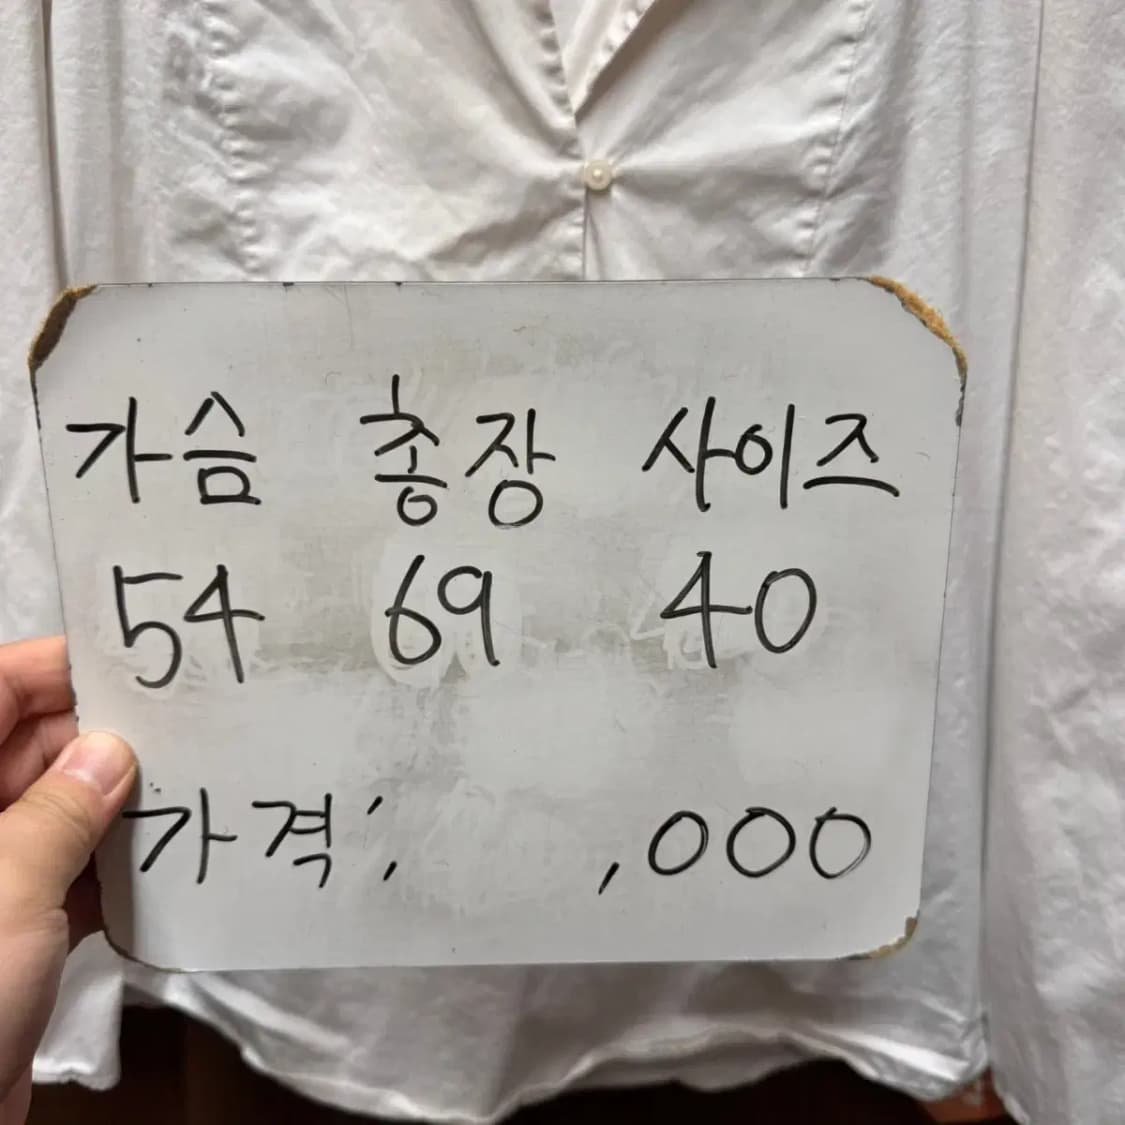 가슴 총장 사이즈
54 69 40
가격: ,000